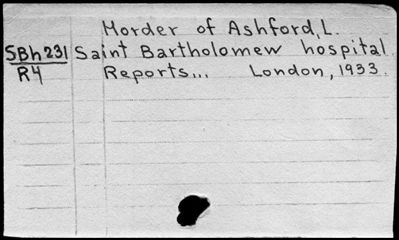 Morder of Ashford, L.
SBh231 Saint Bartholomew hospital
R4 Reports... London, 1933.